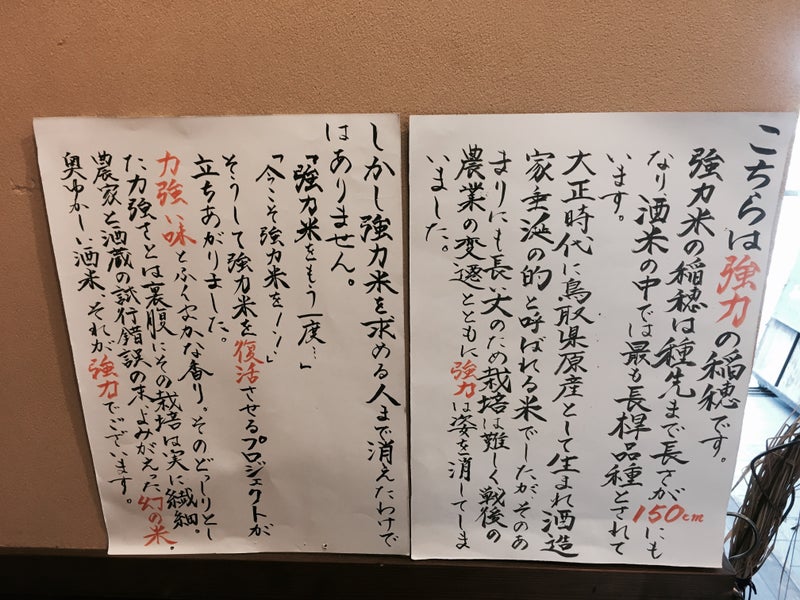 こちらは強力の稲穂です。
強力米の稲穂は種先まで長さが150cmにも
なり酒米の中では最も長桿品種とされて
います。
大正時代に鳥取県原産として生まれ酒造
家垂涎の的と呼ばれる米でしたが、そのあ
まりにも長い丈のため栽培は難しく戦後の
農業の変遷とともに強力は姿を消してしま
いました。
しかし強力米を求める人まで消えたわけで
はありません。
「強力米をもう一度…」
「今こそ強力米を!!」
そうして強力米を復活させるプロジェクトが
立ちあがりました。
力強い味とふくよかな香り。そのどっしりとし
た力強さとは裏腹にその栽培は実に繊細。
農家と酒蔵の試行錯誤の末、よみがえった幻の米。
奥ゆかしい酒米、それが強力でございます。